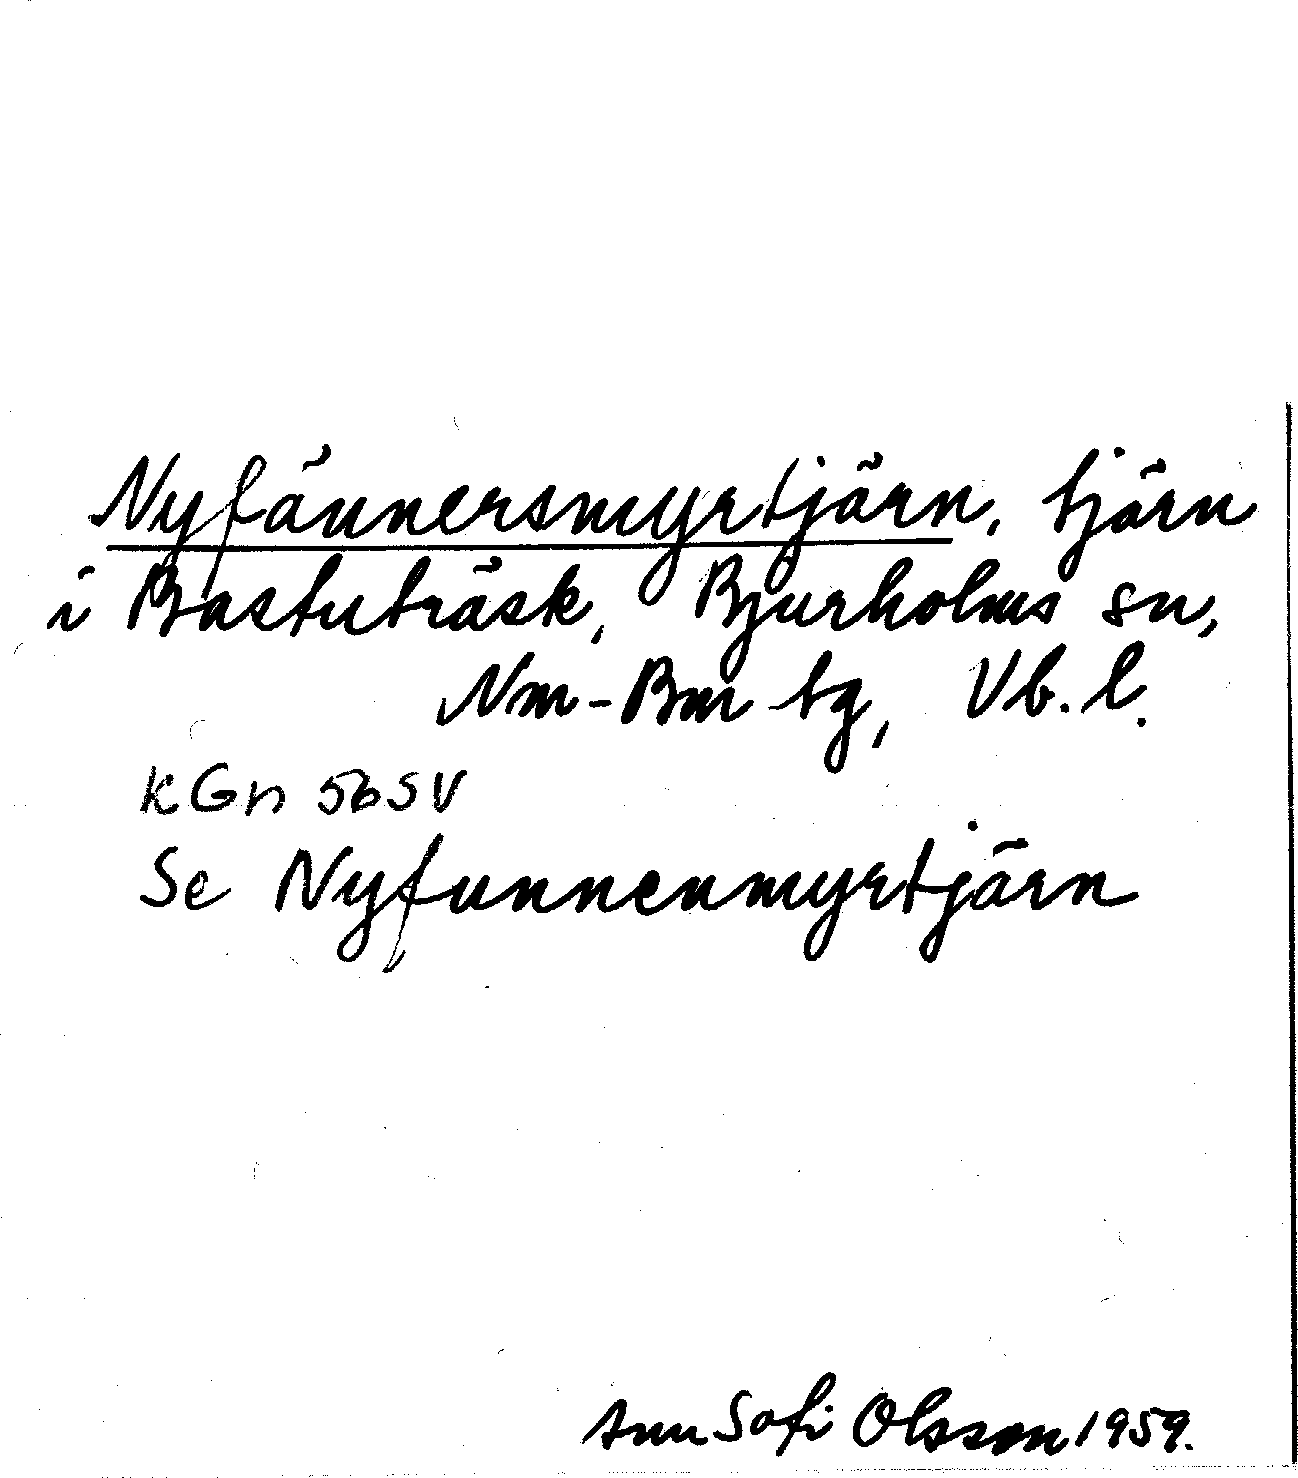 Nyfännersmyrtjärn, tjärn
i Bastuträsk, Bjurholms sn,
Nm-Bm tg, Vb.l.
kGn 56SV
Se Nyfunnenmyrtjärn
Ann Sofi Olsson 1959.